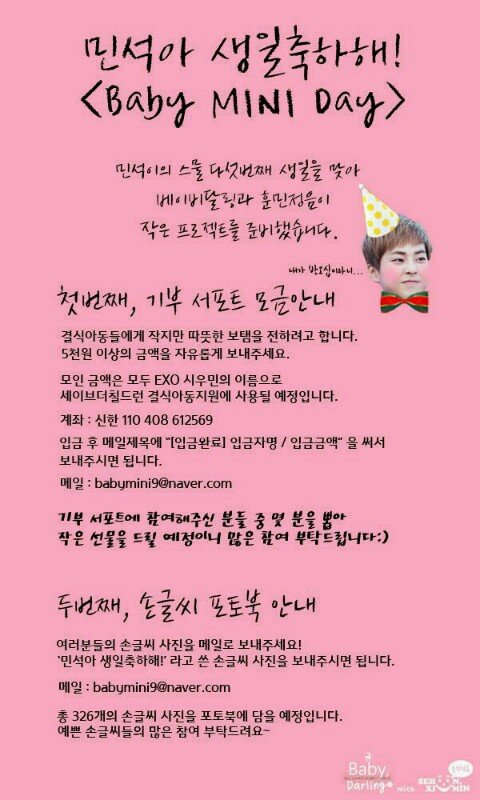 민석아 생일축하해!
<Baby MINI Day>
민석이의 스물 다섯번째 생일을 맞아
베이비달링과 훈민정음이
작은 프로젝트를 준비했습니다.
내가 반오십이라니...
첫번째, 기부 서포트 모금안내
결식아동들에게 작지만 따뜻한 보탬을 전하려고 합니다.
5천원 이상의 금액을 자유롭게 보내주세요.
모인 금액은 모두 EXO 시우민의 이름으로
세이브더칠드런 결식아동지원에 사용될 예정입니다.
계좌 : 신한 110 408 612569
입금 후 메일제목에 "[입금완료] 입금자명 / 입금금액" 을 써서
보내주시면 됩니다.
메일 : babymini9@naver.com
기부 서포트에 참여해주신 분들 중 몇 분을 뽑아
작은 선물을 드릴 예정이니 많은 참여 부탁드립니다:)
두번째, 손글씨 포토북 안내
여러분들의 손글씨 사진을 메일로 보내주세요!
'민석아 생일축하해!' 라고 쓴 손글씨 사진을 보내주시면 됩니다.
메일 : babymini9@naver.com
총 326개의 손글씨 사진을 포토북에 담을 예정입니다.
예쁜 손글씨들의 많은 참여 부탁드려요~
Baby,
Darling# with